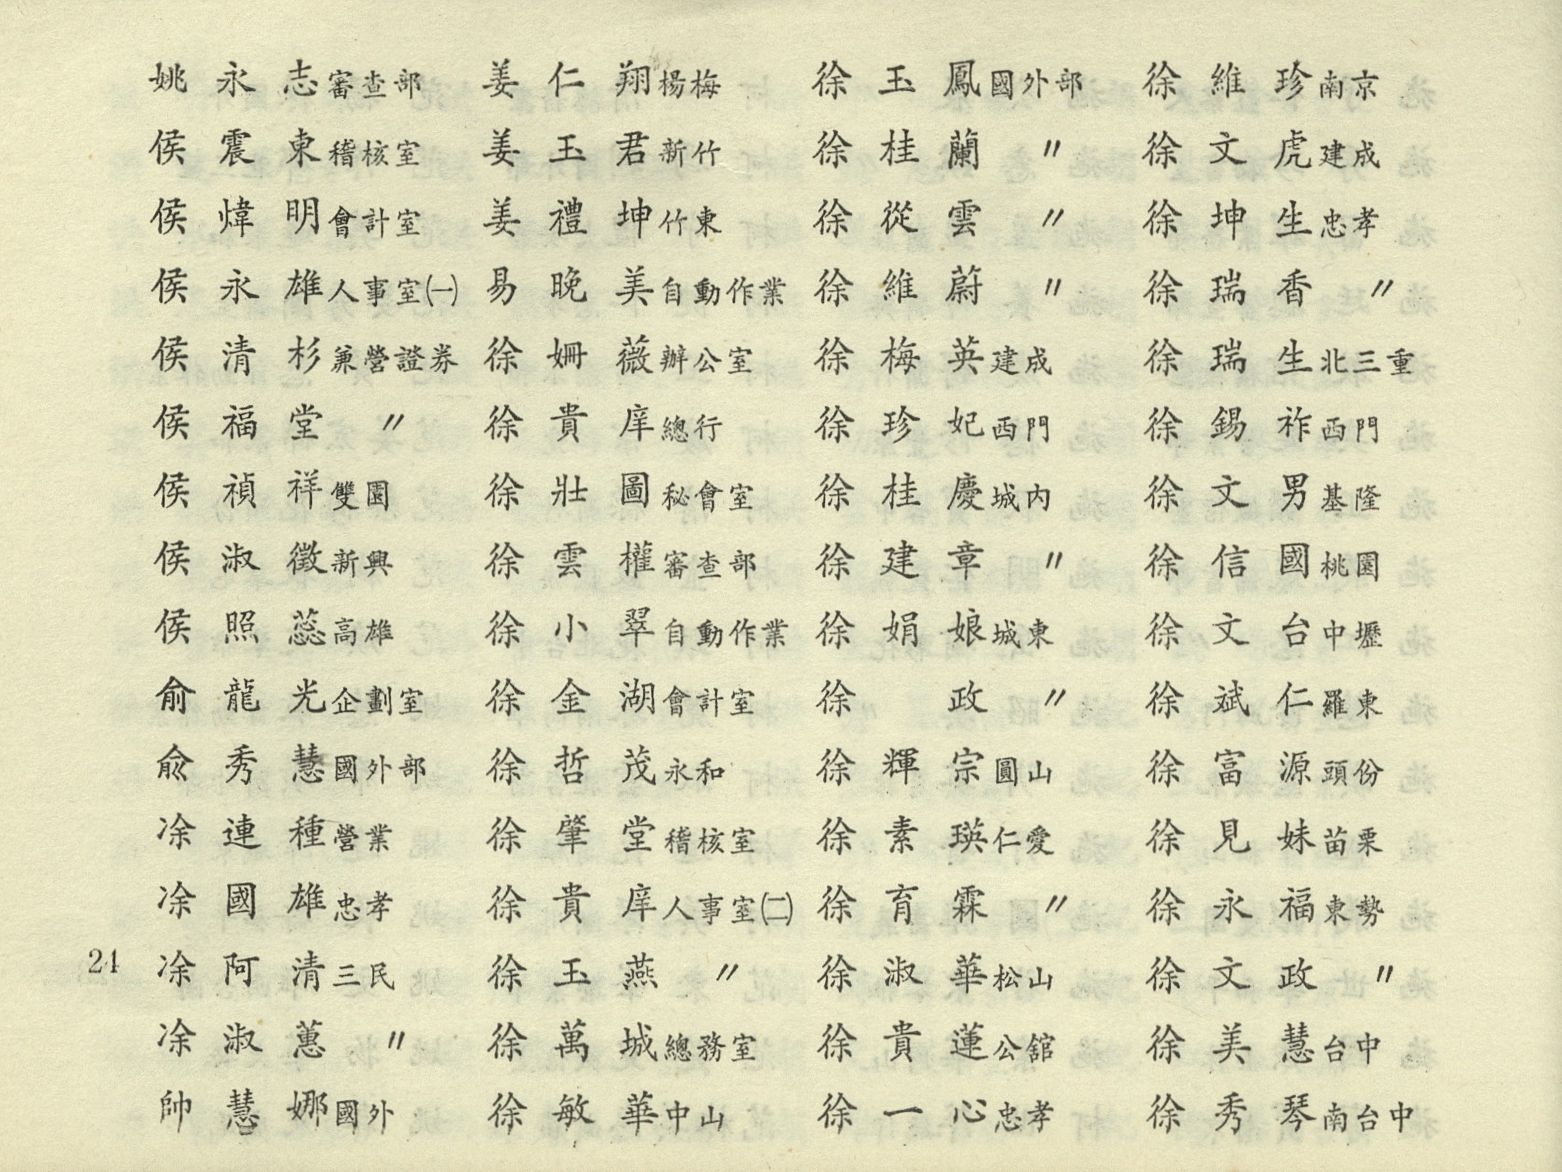 姚永志審查部
侯震東稽核室
侯煒明會計室
侯永雄人事室㈠
侯清杉兼營證券
侯福堂〃
侯禎祥雙園
侯淑徵新興
侯照蕊高雄
俞龍光企劃室
俞秀慧國外部
凃連種營業
凃國雄忠孝
凃阿清三民
凃淑蕙〃
帥慧娜國外
姜仁翔楊梅
姜玉君新竹
姜禮坤竹東
易晚美自動作業
徐姍薇辦公室
徐貴庠總行
徐壯圖秘會室
徐雲權審查部
徐小翠自動作業
徐金湖會計室
徐哲茂永和
徐肇堂稽核室
徐貴庠人事室㈡
徐玉燕〃
徐萬城總務室
徐敏華中山
徐玉鳳國外部
徐桂蘭〃
徐從雲〃
徐維蔚〃
徐梅英建成
徐珍妃西門
徐桂慶城內
徐建章〃
徐娟娘城東
徐政〃
徐輝宗圓山
徐素瑛仁愛
徐育霖〃
徐淑華松山
徐貴蓮公舘
徐一心忠孝
徐維珍南京
徐文虎建成
徐坤生忠孝
徐瑞香〃
徐瑞生北三重
徐錫祚西門
徐文男基隆
徐信國桃園
徐文台中壢
徐斌仁羅東
徐富源頭份
徐見妹苗栗
徐永福東勢
徐文政〃
徐美慧台中
徐秀琴南台中
24